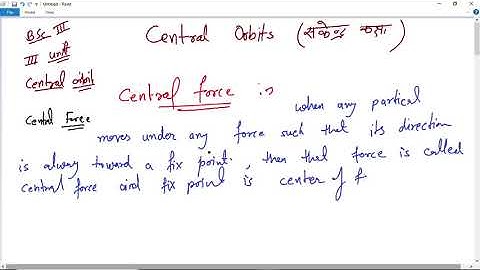 Untitled - Paint
File
Home
View
BSc III
III unit
Central orbit
Central Force
Central Orbits (संकेन्द्र कक्षा)
Central force is
when any partical
moves under any force such that its direction
is alway toward a fix point, then that force is called
central force and fix point is center of f